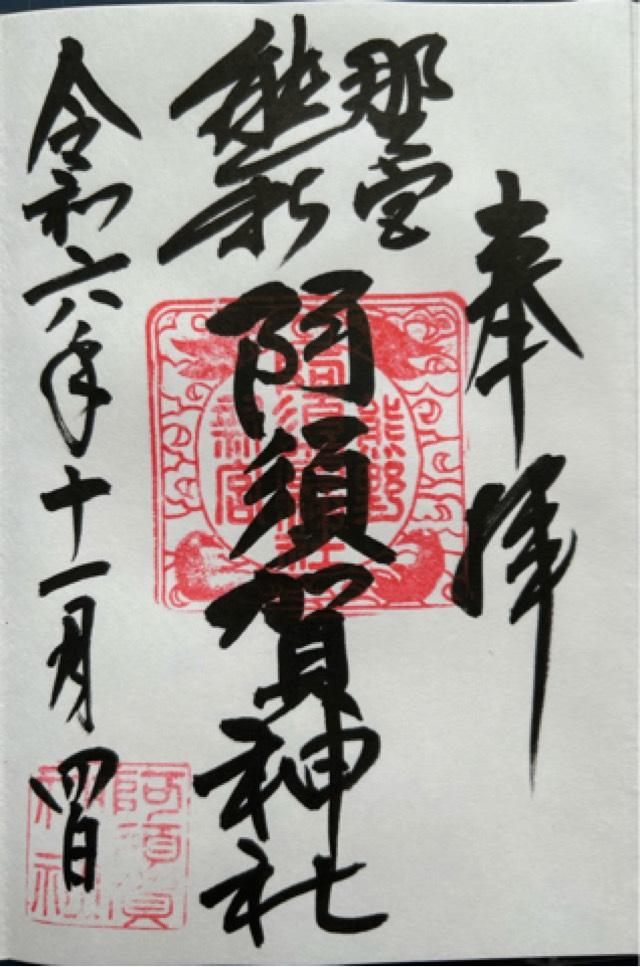 奉拝
熊野
新宮
阿須賀神社
令和六年十一月四日
熊野
阿須賀神社
新宮
阿須賀
神社